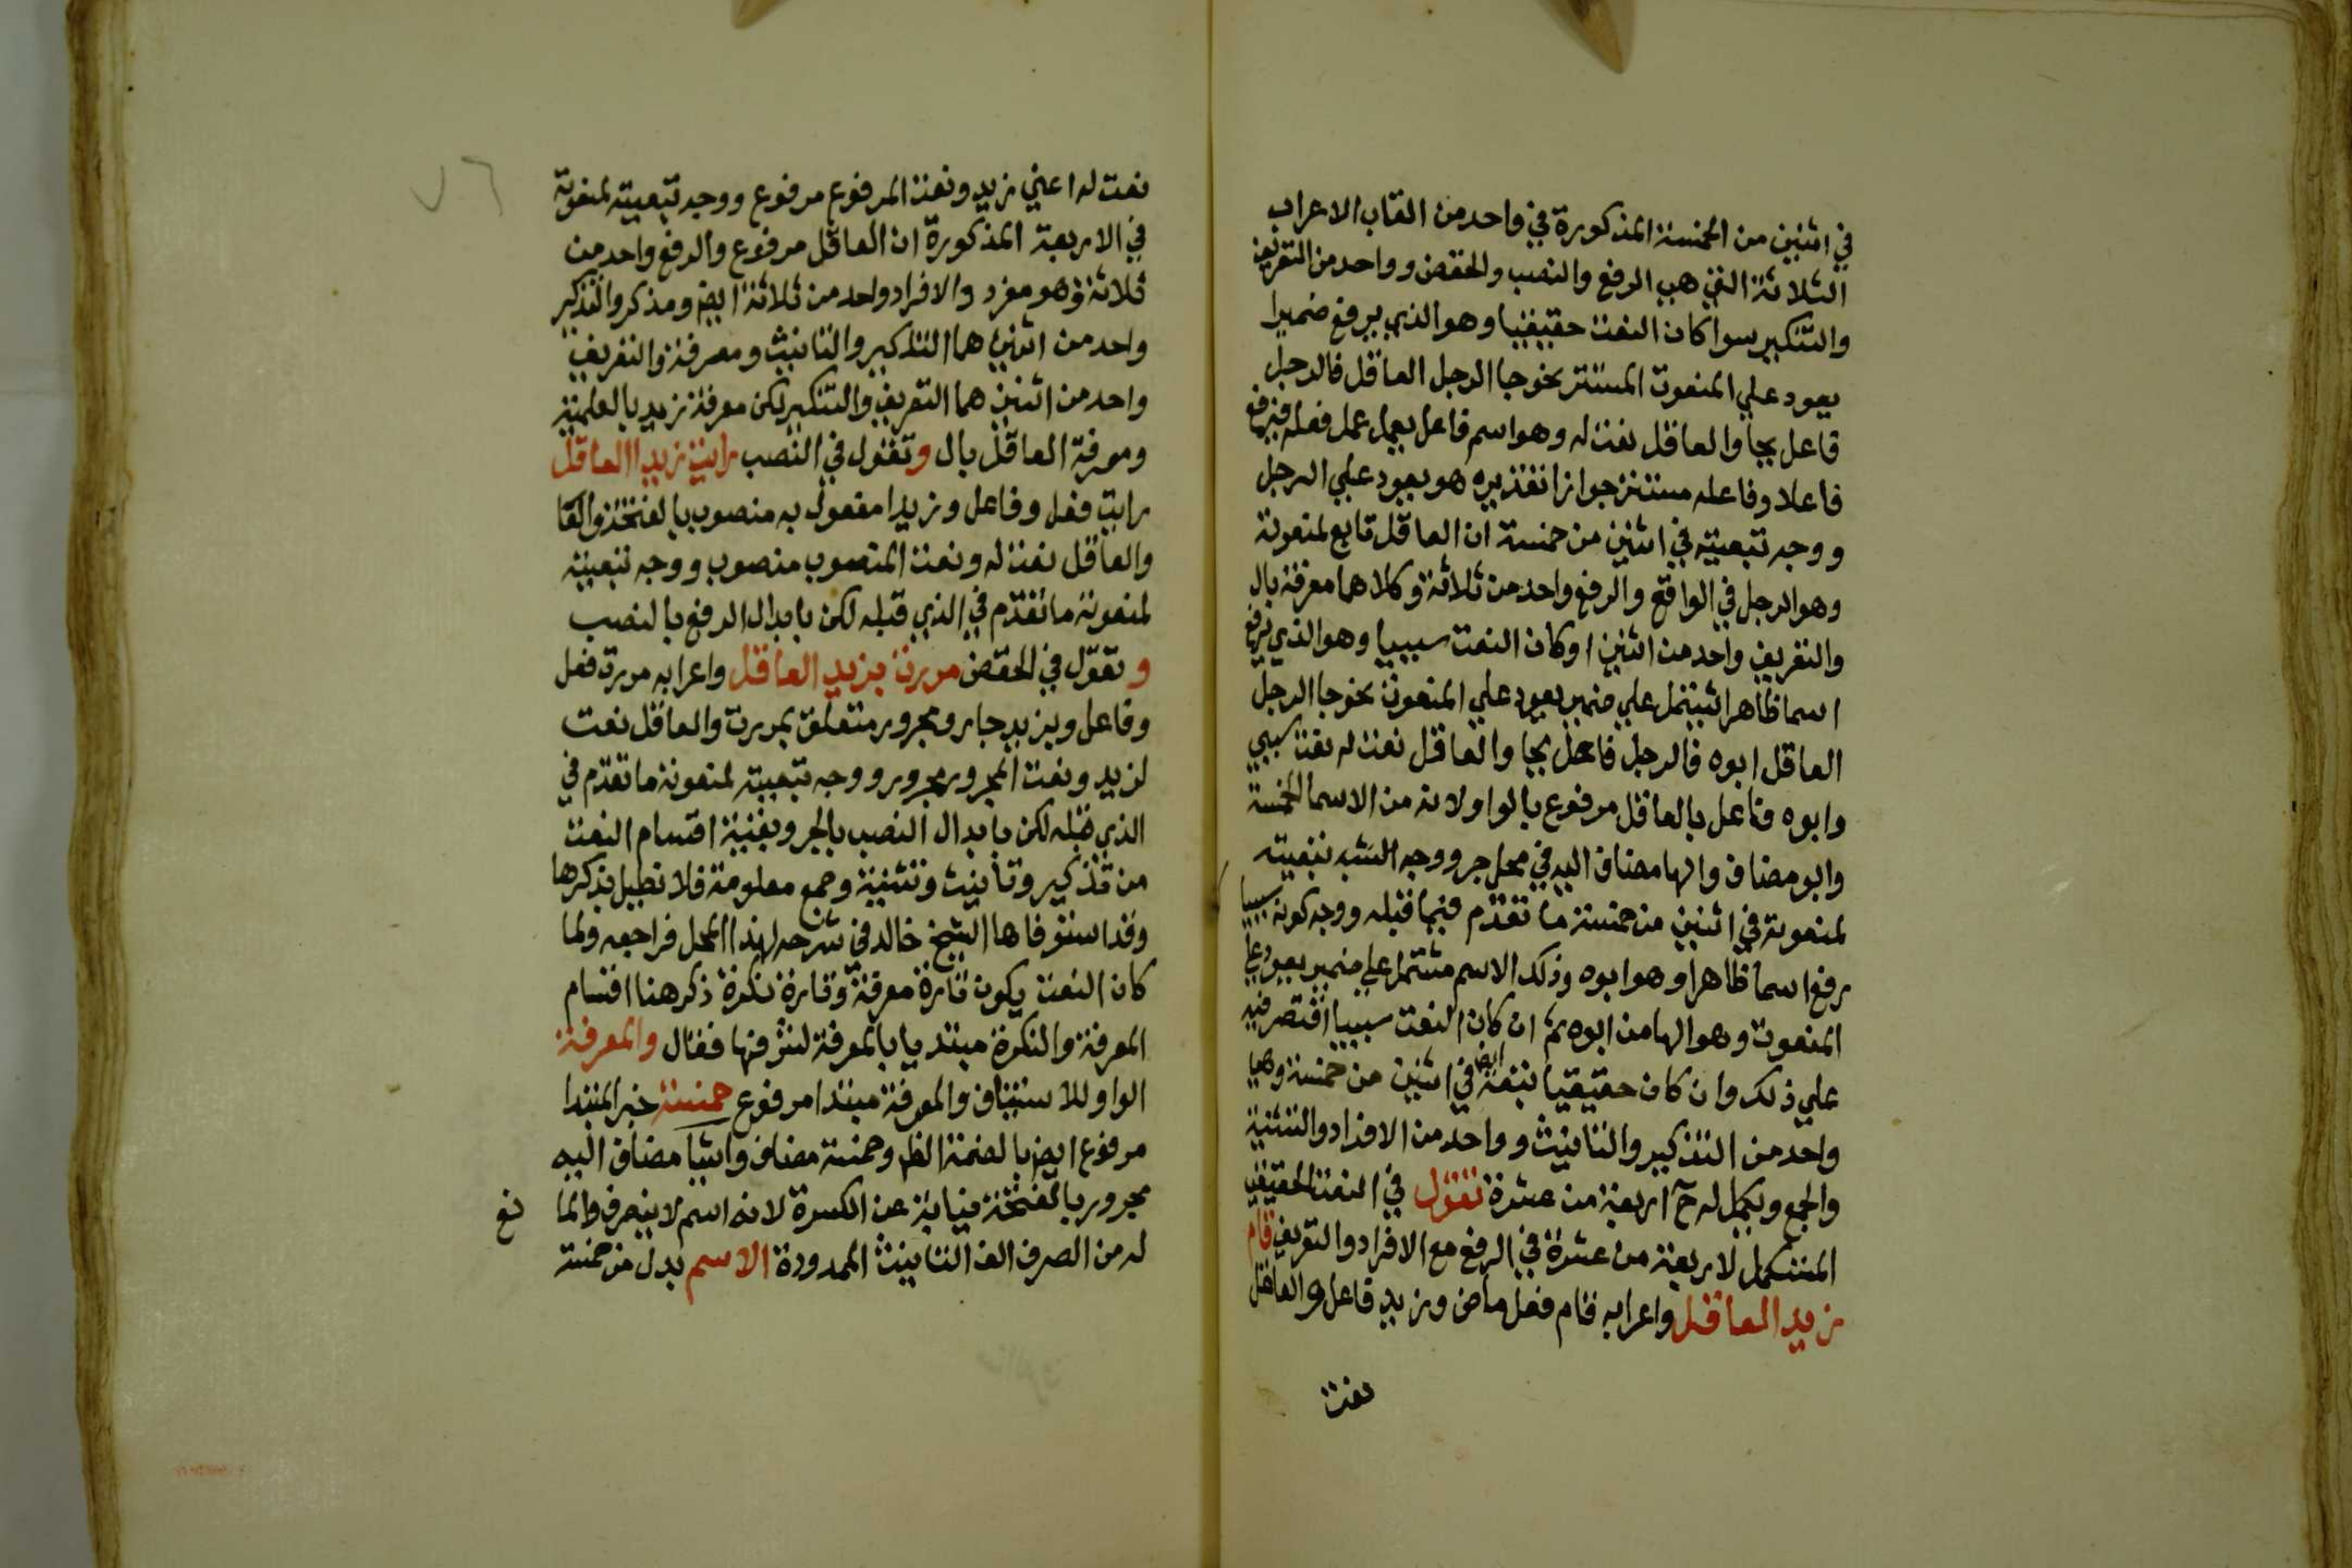 في اثنين من الخمسة المذكورة في واحد من القاب الاعراب
الثلاثة التي هي الرفع والنصب والخفض وواحد من التعريف
والتنكير سوا كان النعت حقيقيا وهو الذي يرفع ضميرا
يعود علي المنعوت المستتر نحو جا الرجل العاقل فالرجل
فاعل بجا والعاقل نعت له وهو اسم فاعل يعمل عمل فعله فيرفع
فاعلا وفاعله مستتر جوازا تقديره هو يعود علي الرجل
ووجه تبعيته في اثنين من خمسة ان العاقل تابع لمنعوته
وهو الرجل في الواقع والرفع واحد من ثلاثة وكلاهما معرفة بال
والتعريف واحد من اثنين او كان النعت سببيا وهو الذي يرفع
اسما ظاهرا يشتمل علي ضمير يعود علي المنعوت نحو جا الرجل
العاقل ابوه فالرجل فاعل بجا والعاقل نعت له نعت سببي
وابوه فاعل بالعاقل مرفوع بالواو لانه من الاسما الخمسة
وابو مضاف والها مضاف اليه في محل جر ووجه الشبه تبعيته
لمنعوته في اثنين من خمسة ما تقدم فيما قبله ووجه كونه سببيا
رفع اسما ظاهرا وهو ابوه وذلك الاسم مشتمل علي ضمير يعود علي
المنعوت وهو الها من ابوه ثم ان كان النعت سببيا اقتصر فيه
علي ذلك وان كان حقيقيا تبعه ايض في اثنين من خمسة وهما
واحد من التذكير والتانيث وواحد من الافراد والتثنية
والجمع ويكمل له ح اربعة من عشرة تقول في النعت الحقيقي
المستكمل لاربعة من عشرة في الرفع مع الافراد والتعريف قام
زيد العاقل واعرابه قام فعل ماض وزيد فاعل والعاقل
نعت
٧٦
نعت له اعني زيد ونعت المرفوع مرفوع ووجه تبعيته لمنعوته
في الاربعة المذكورة ان العاقل مرفوع والرفع واحد من
ثلاثة وهو مفرد والافراد واحد من ثلاثة ايض ومذكر والتذكير
واحد من اثنين هما التذكير والتانيث ومعرفة والتعريف
واحد من اثنين هما التعريف والتنكير لكن معرفة زيد بالعلمية
ومعرفة العاقل بال وتقول في النصب رايت زيدا العاقل
رايت فعل وفاعل وزيدا مفعول به منصوب بالفتحة والعا
والعاقل نعت له ونعت المنصوب منصوب ووجه تبعيته
لمنعوته ما تقدم في الذي قبله لكن بابدال الرفع بالنصب
وتقول في الخفض مررت بزيد العاقل واعرابه مررت فعل
وفاعل وبزيد جار ومجرور متعلق بمررت والعاقل نعت
لزيد ونعت المجرور مجرور ووجه تبعيته لمنعوته ما تقدم في
الذي قبله لكن بابدال النصب بالجر وبقية اقسام النعت
من تذكير وتأنيث وتثنية وجمع معلومة فلا نطيل بذكرها
وقد استوفاها الشيخ خالد في شرحه لهذا المحل فراجعه ولما
كان النعت يكون تارة معرفة وتارة نكرة ذكر هنا اقسام
المعرفة والنكرة مبتديا بالمعرفة لشرفها فقال والمعرفة
الواو للاستيناف والمعرفة مبتدا مرفوع خمسة خبر المبتدا
مرفوع ايض بالضمة الظ وخمسة مضاف واشيا مضاف اليه
مجرور بالفتحة نيابة عن الكسرة لانه اسم لا ينصرف والما نع
له من الصرف الف التانيث الممدودة الاسم بدل من خمسة